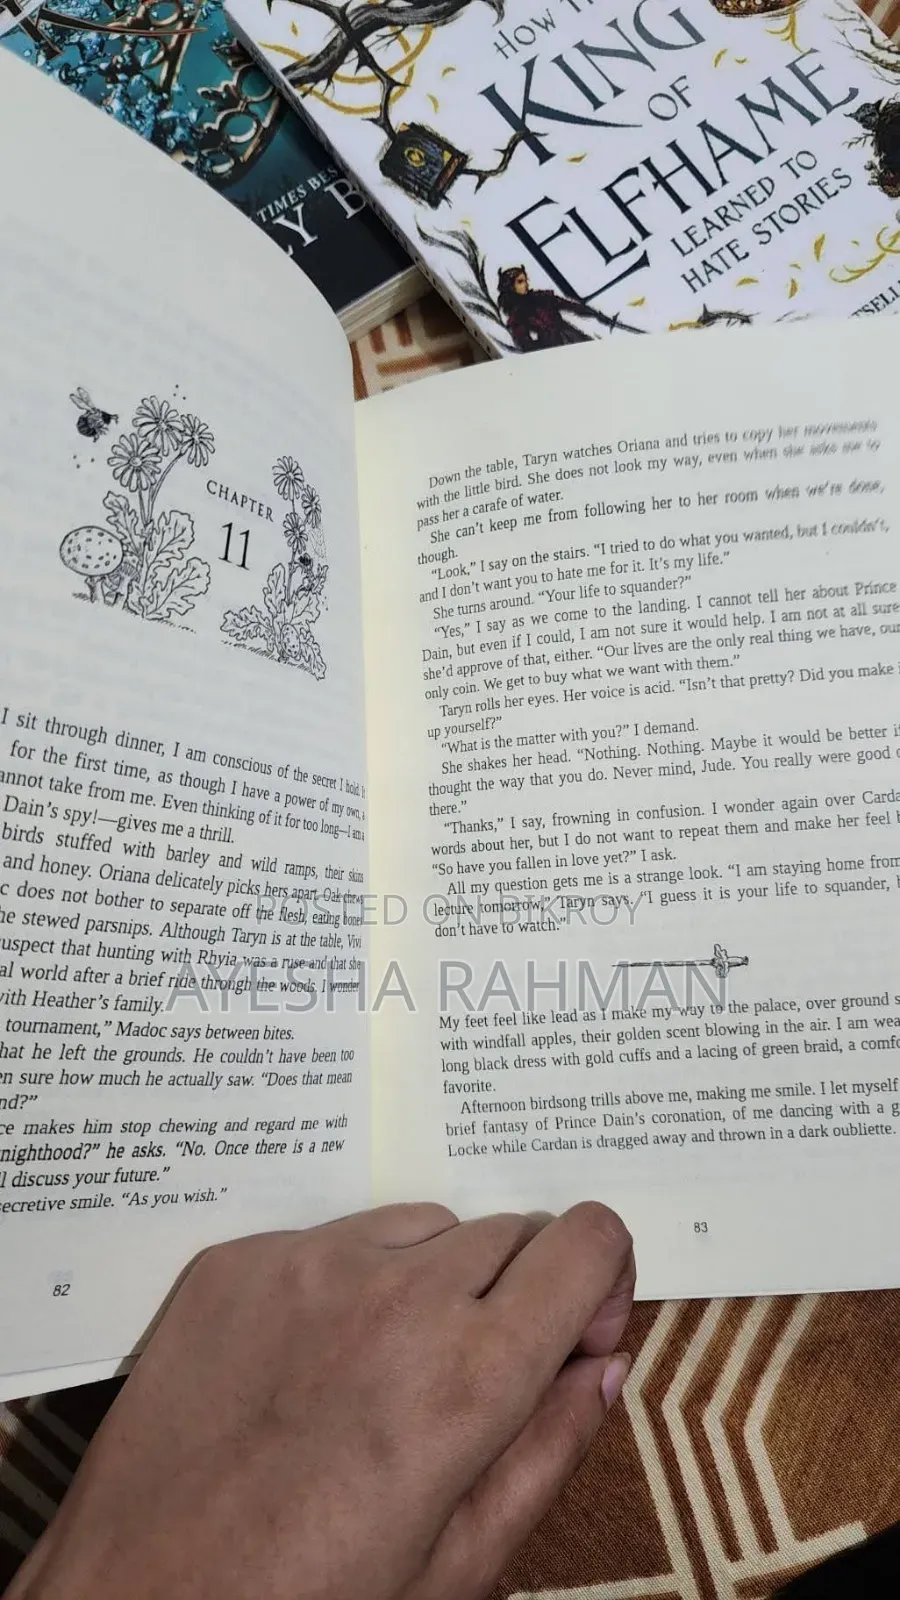 HOW
KING
OF
ELFHAME
LEARNED TO
HATE STORIES
TIMES BES
LY B
CHAPTER
11
I sit through dinner, I am conscious of the secret I hold.
for the first time, as though I have a power of my own, a
annot take from me. Even thinking of it for too long—I am a
Dain's spy!—gives me a thrill.
birds stuffed with barley and wild ramps, their skins
and honey. Oriana delicately picks hers apart. Oak chews
c does not bother to separate off the flesh, eating bones
he stewed parsnips. Although Taryn is at the table, Vivi
uspect that hunting with Rhyia was a ruse and that she
al world after a brief ride through the woods. I wonder
with Heather's family.
tournament," Madoc says between bites.
hat he left the grounds. He couldn't have been too
en sure how much he actually saw. "Does that mean
nd?"
ce makes him stop chewing and regard me with
nighthood?" he asks. "No. Once there is a new
ll discuss your future."
secretive smile. "As you wish."
82
Down the table, Taryn watches Oriana and tries to copy her movements
with the little bird. She does not look my way, even when she asks me to
pass her a carafe of water.
She can't keep me from following her to her room when we're done,
though.
"Look," I say on the stairs. "I tried to do what you wanted, but I couldn't,
and I don't want you to hate me for it. It's my life."
She turns around. "Your life to squander?"
"Yes," I say as we come to the landing. I cannot tell her about Prince
Dain, but even if I could, I am not sure it would help. I am not at all sure
she'd approve of that, either. "Our lives are the only real thing we have, our
only coin. We get to buy what we want with them."
Taryn rolls her eyes. Her voice is acid. "Isn't that pretty? Did you make i
up yourself?"
"What is the matter with you?" I demand.
She shakes her head. "Nothing. Nothing. Maybe it would be better if
thought the way that you do. Never mind, Jude. You really were good o
there."
"Thanks," I say, frowning in confusion. I wonder again over Carda
words about her, but I do not want to repeat them and make her feel b
"So have you fallen in love yet?" I ask.
All my question gets me is a strange look. "I am staying home from
lecture tomorrow," Taryn says. "I guess it is your life to squander, b
don't have to watch."
My feet feel like lead as I make my way to the palace, over ground s
with windfall apples, their golden scent blowing in the air. I am wea
long black dress with gold cuffs and a lacing of green braid, a comfo
favorite.
Afternoon birdsong trills above me, making me smile. I let myself
brief fantasy of Prince Dain's coronation, of me dancing with a g
Locke while Cardan is dragged away and thrown in a dark oubliette.
83
POSTED ON BIKROY
AYESHA RAHMAN